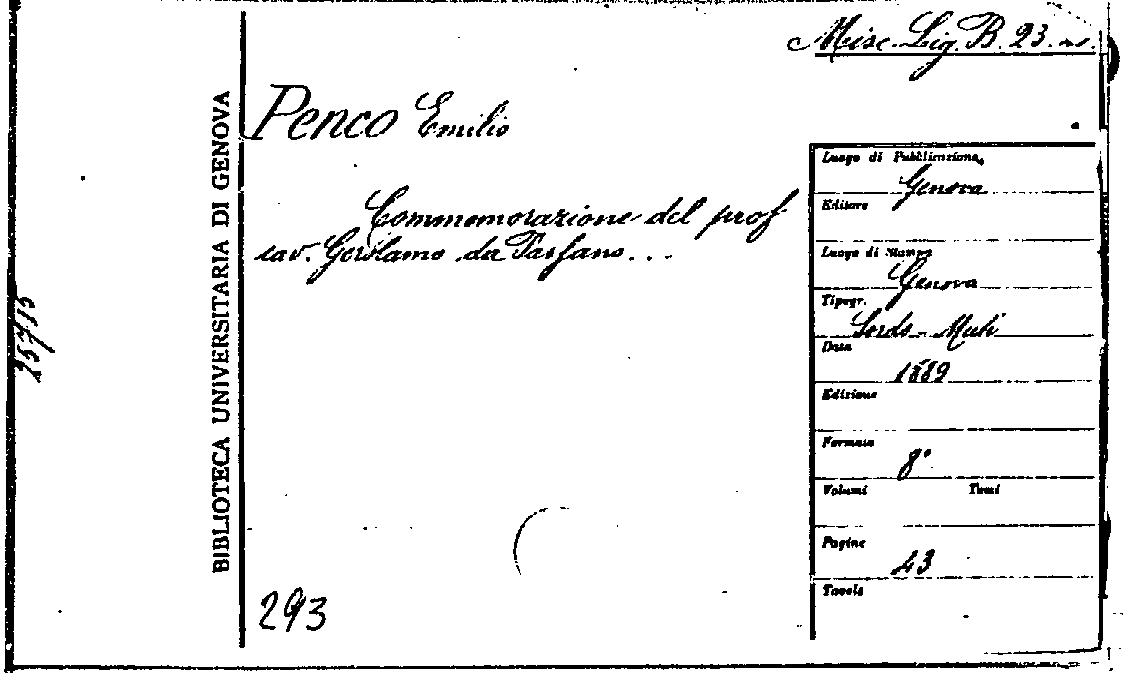 Misc. Lig. B. 23.
BIBLIOTECA UNIVERSITARIA DI GENOVA
Penco Emilio
Commemorazione del prof
cav. Gerolamo da Passano...
293
Luogo di Pubblicazione
Genova
Editore
Luogo di Stampa
Genova
Tipogr.
Sordo-Muti
Data
1889
Edizione
Formato
8°
Volumi Tomi
Pagine
43
Tavole